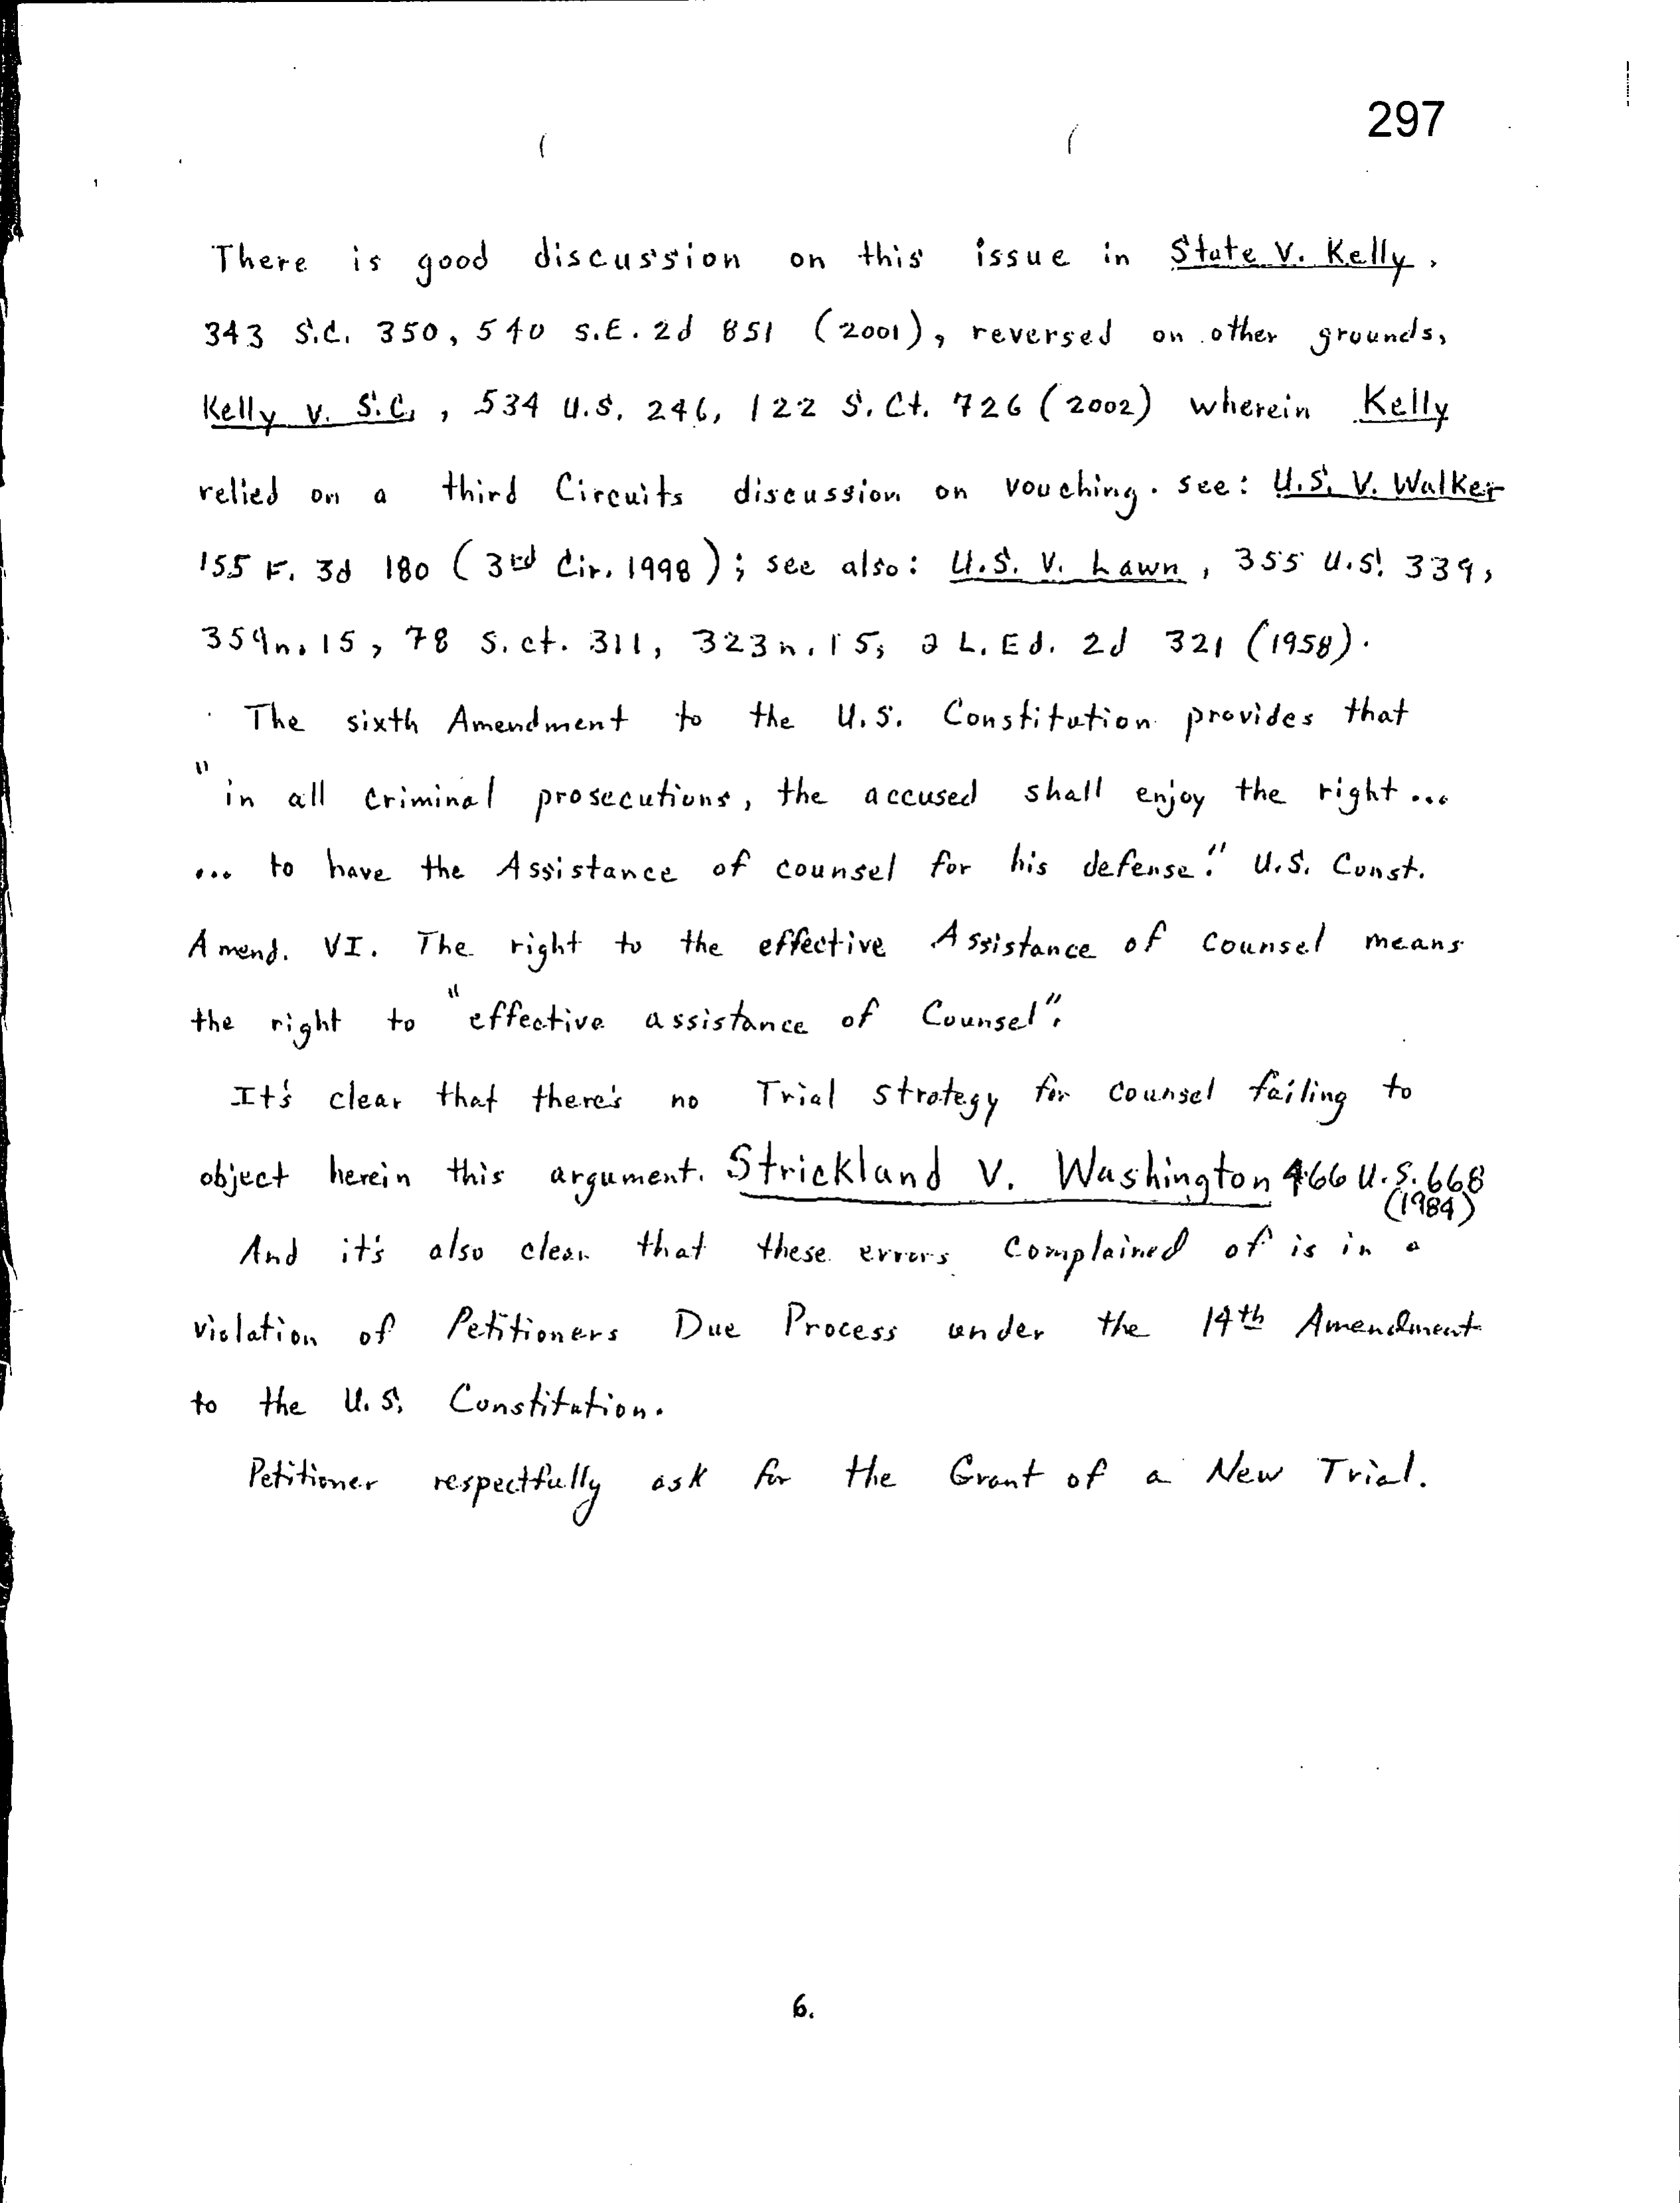 297
There is good discussion on this issue in State V. Kelly,
343 S.C. 350, 540 S.E. 2d 851 (2001), reversed on other grounds,
Kelly v. S.C., 534 U.S. 246, 122 S. Ct. 726 (2002) wherein Kelly
relied on a third Circuits discussion on vouching. see: U.S. V. Walker
155 F. 3d 180 (3rd Cir. 1998); see also: U.S. V. Lawn, 355 U.S. 339,
359n.15, 78 S. ct. 311, 323n.15, 2 L. Ed. 2d 321 (1958).
The sixth Amendment to the U.S. Constitution provides that
"in all criminal prosecutions, the accused shall enjoy the right...
... to have the Assistance of counsel for his defense." U.S. Const.
Amend. VI. The right to the effective Assistance of counsel means
the right to "effective assistance of Counsel".
It's clear that there's no Trial strategy for counsel failing to
object herein this argument. Strickland V. Washington 466 U.S. 668
(1984)
And it's also clear that these errors complained of is in a
violation of Petitioners Due Process under the 14th Amendment
to the U.S. Constitution.
Petitioner respectfully ask for the Grant of a New Trial.
6.